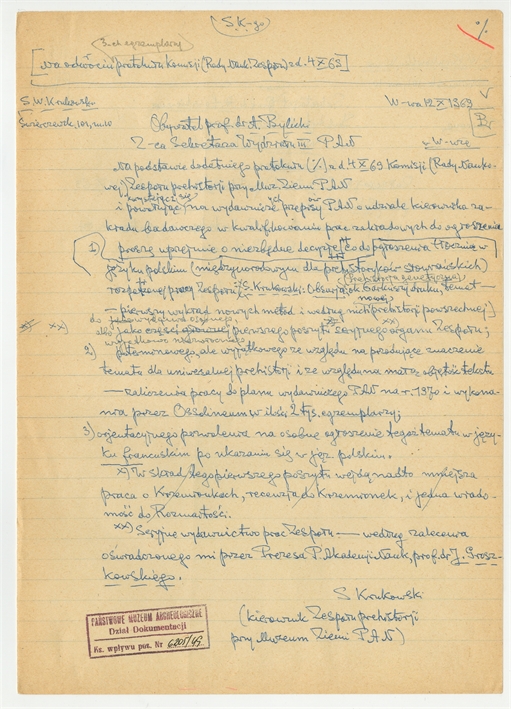 S.K-go
3-ch egzemplarzy
%
[na odwrocie protokułu Komisji (Rady Nauk. Zespołu) z d. 4 X 69]
S.W. Krukowski
W-wa 12 X 1969
Świerczewsk. 101, m. 10
Obywatel prof. dr A. Bylicki
w W-wie
Z-ca Sekretarza Wydziału III PAN
Na podstawie dodatniego protokułu (%) z d. 4 X 69 Komisji (Rady Nauko-
wej) Zespołu prehistorji przy Muz. Ziemi PAN
i powołując się na wydawnicze przepisy PAN o udziale kierownika za-
kładu badawczego w kwalifikowaniu prac zakładowych do ogłoszenia
proszę uprzejmie o niezbędne decyzje co do ogłoszenia
1)
języku polskim (międzynarodowym dla prehistoryków słowiańskich)
rozpoczętej pracy Zespołu S. Krukowski: ark. druku, temat —
nowej
— pierwszy wykład nowych metod i według nich prehistorji powszechnej]
xx) jako części pierwszego poszytu seryjnego organu Zespołu;
2) ale wyjątkowego ze względu na przodujące znaczenie
tematu dla uniwersalnej prehistorji i ze względu na objętość tekstu
— zaliczenia pracy do planu wydawniczego PAN na r. 1970 i wykona-
nia przez Ossolineum w ilości 2 tys. egzemplarzy;
3) orjentacyjnego pozwolenia na osobne ogłoszenie tegoż tematu w języ-
ku francuskim po ukazaniu się w jęz. polskim.
x) W skład tego pierwszego poszytu wejdą nadto mniejsza
praca o Krzemionkach, recenzja do Krzemionek, i jedna wiado-
mość do Rozmaitości.
xx) Seryjne wydawnictwo prac Zespołu — według zalecenia
oświadczonego mi przez Prezesa P. Akademji Nauk, prof. dr J. Grosz-
kowskiego.
S Krukowski
(kierownik Zespołu prehistorji
przy Muzeum Ziemi PAN)
PAŃSTWOWE MUZEUM ARCHEOLOGICZNE
Dział Dokumentacji
Ks. wpływu poz. Nr 6205/49